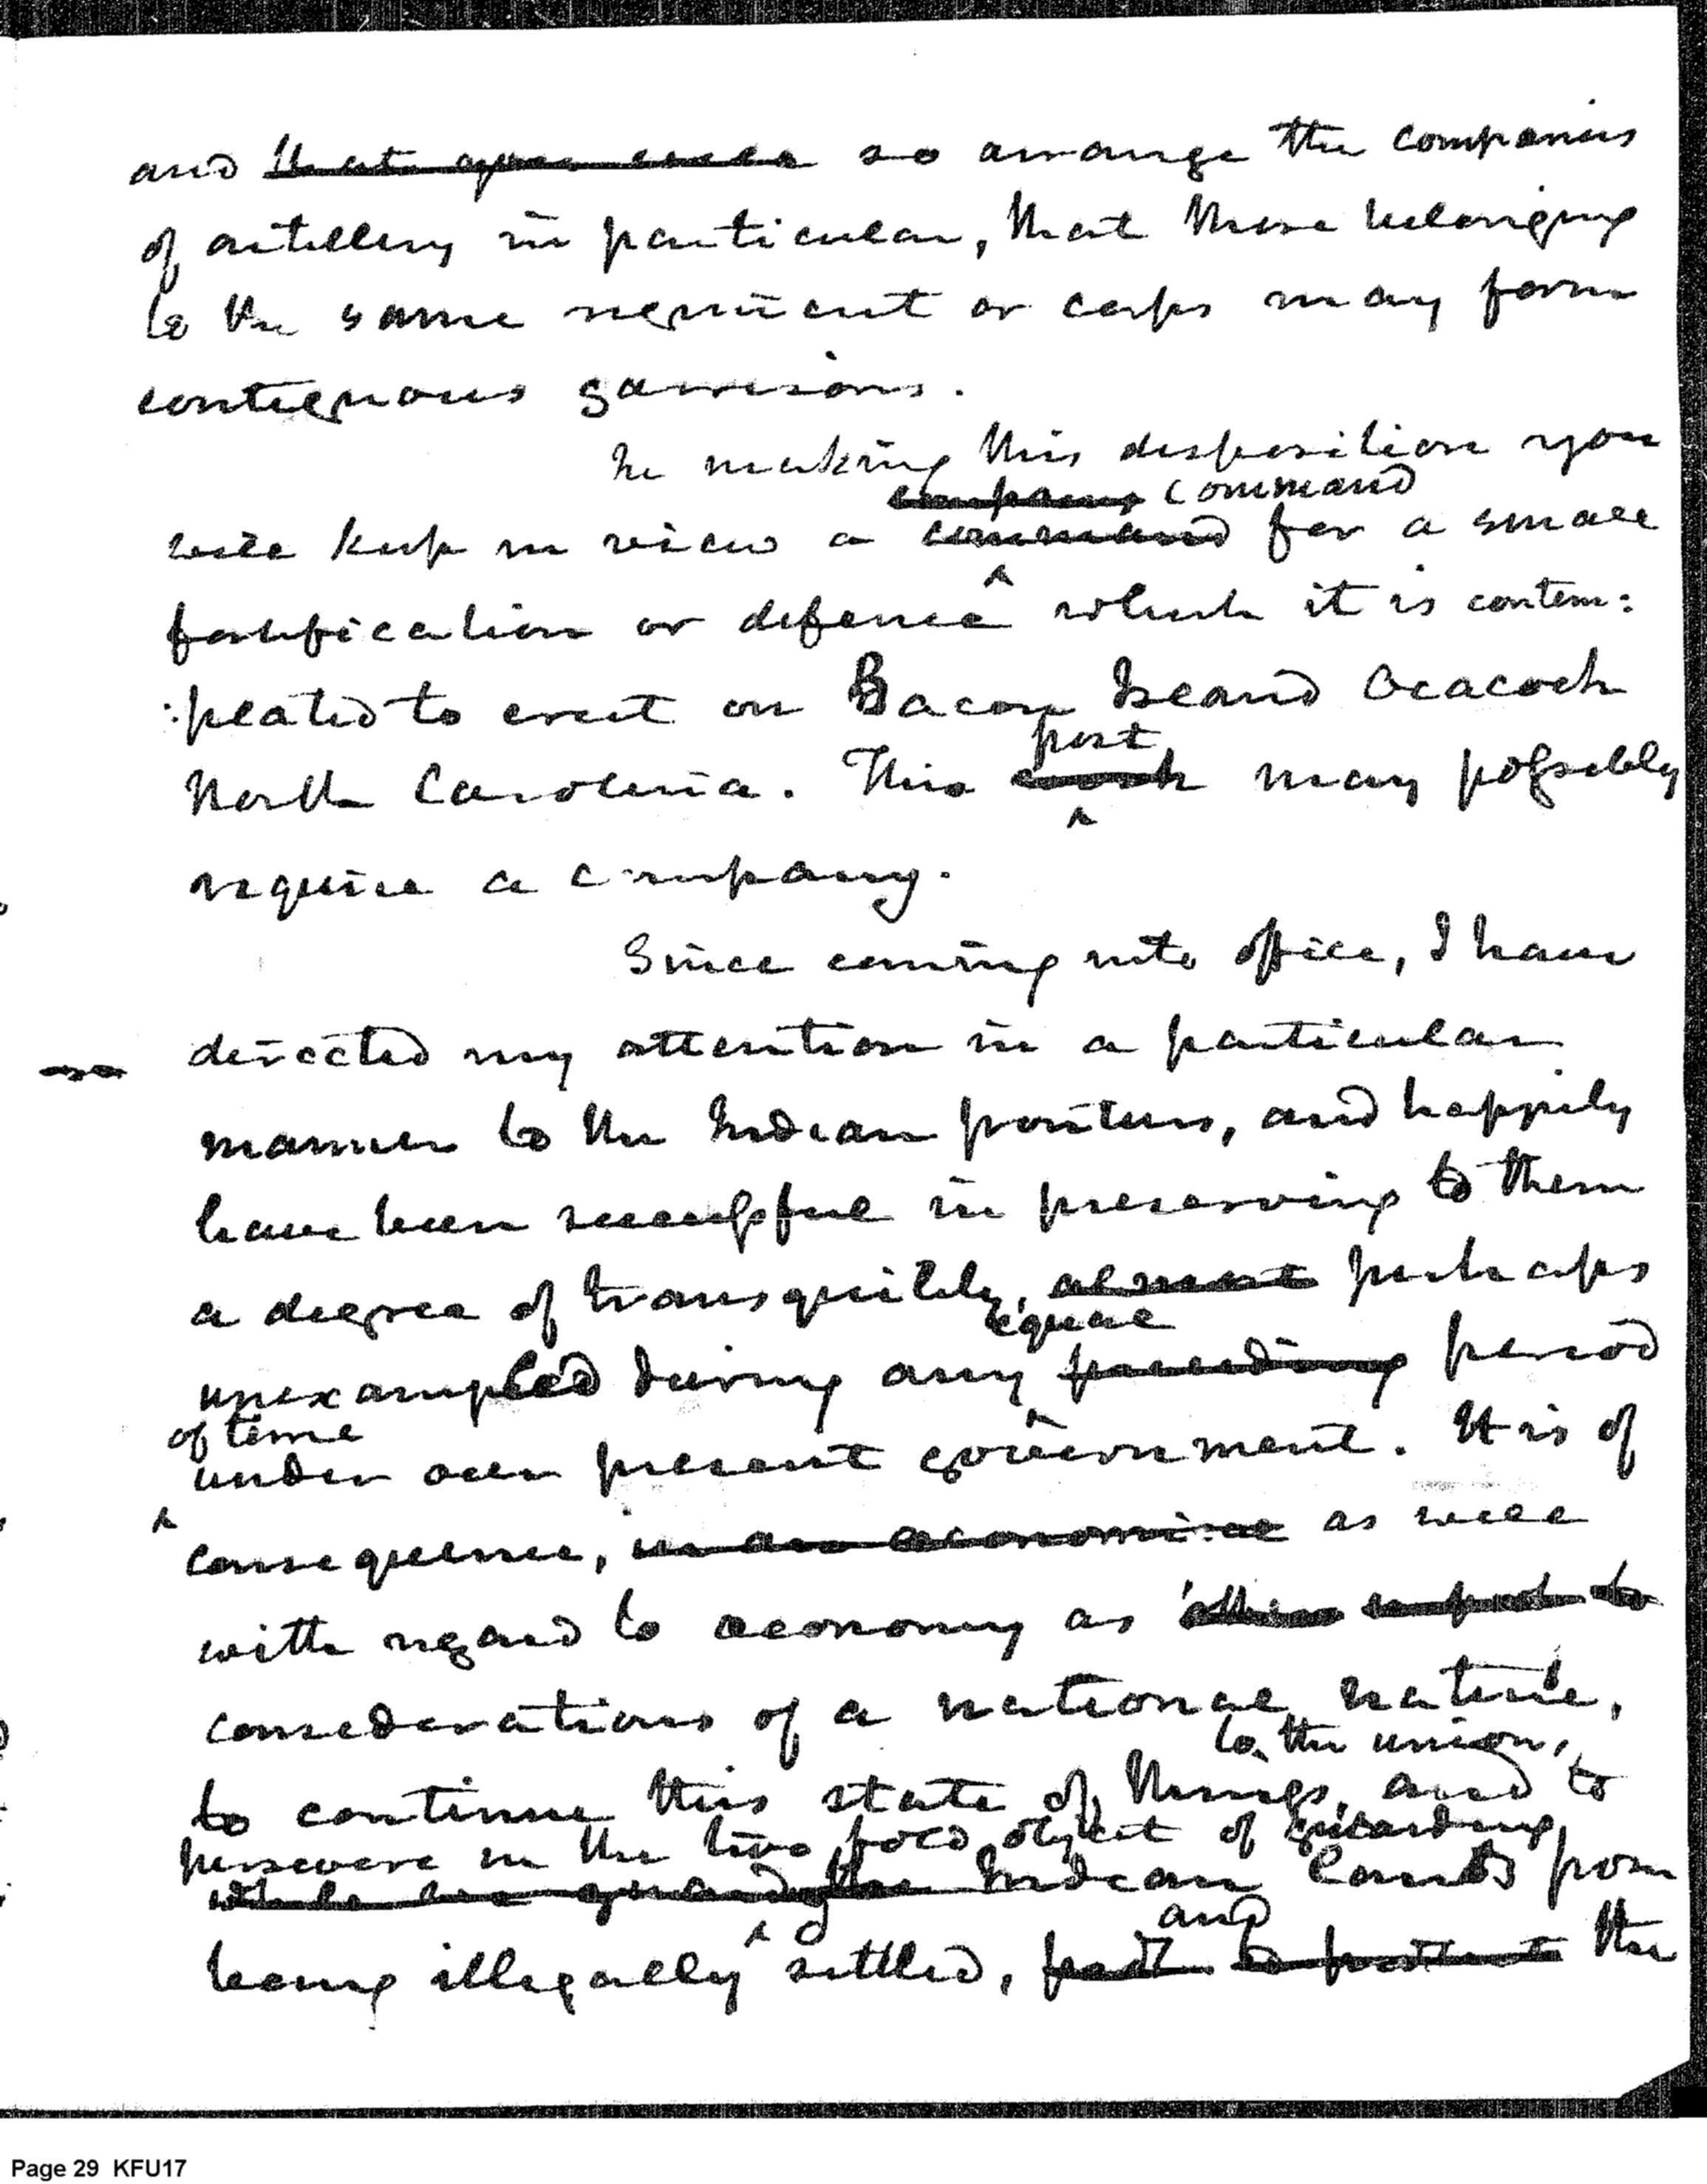 and that you will so arrange the companies
of artillery in particular, that those belonging
to the same regiment or corps may form
contiguous garrisons.
In making this disposition you
company command
will keep in view a command for a small
fortification or defence which it is contem:
:plated to erect on Bacon Island Ocacock
post
North Carolina. This work may possibly
require a company.
Since coming into office, I have
directed my attention in a particular
manner to the Indian frontiers, and happily
have been successful in preserving to them
a degree of tranquility, almost perhaps
equal
unexampled during any preceeding period
of time
under our present government. It is of
consequence, in an œconomical as well
with regard to œconomy as other respect to
considerations of a national nature,
to the union,
to continue this state of things, and to
persevere in the two fold object of guarding
while we guard the Indian lands from
and
being illegally settled, to protect the
Page 29 KFU17